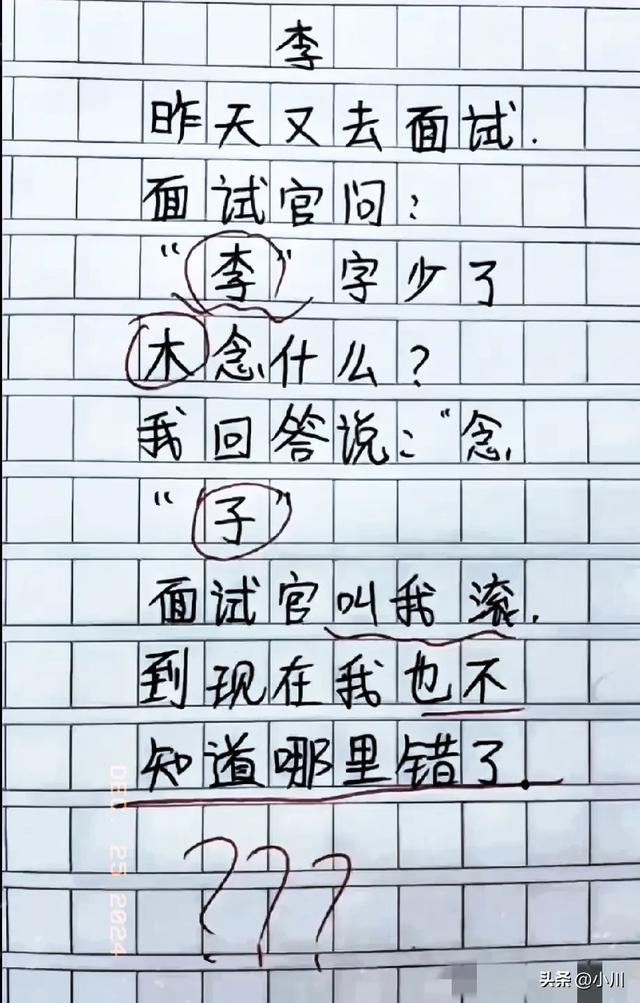 李
昨天又去面试.
面试官问:
“李”字少了
木念什么?
我回答说:“念
“子”
面试官叫我滚.
到现在我也不
知道哪里错了.
???
DEC. 25 2024
头条 @小川